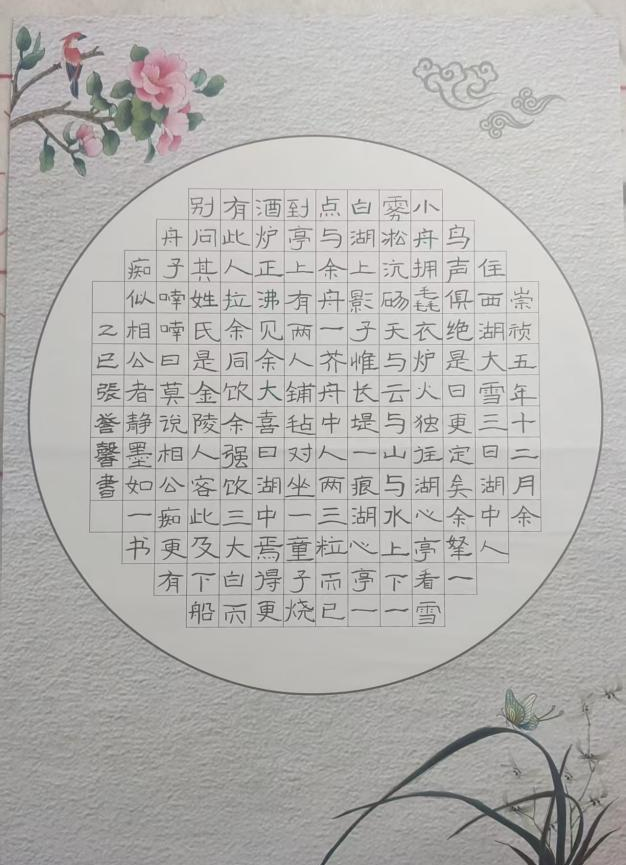 崇祯五年十二月余
住西湖大雪三日湖中人
鸟声俱绝是日更定矣余拏一
小舟拥毳衣炉火独往湖心亭看雪
雾凇沆砀天与云与山与水上下一
白湖上影子惟长堤一痕湖心亭一
点与余舟一芥舟中人两三粒而已
到亭上有两人铺毡对坐一童子烧
酒炉正沸见余大喜曰湖中焉得更
有此人拉余同饮余强饮三大白而
别问其姓氏是金陵人客此及下船
舟子喃喃曰莫说相公痴更有
痴似相公者静墨如一书
乙巳張誉馨書